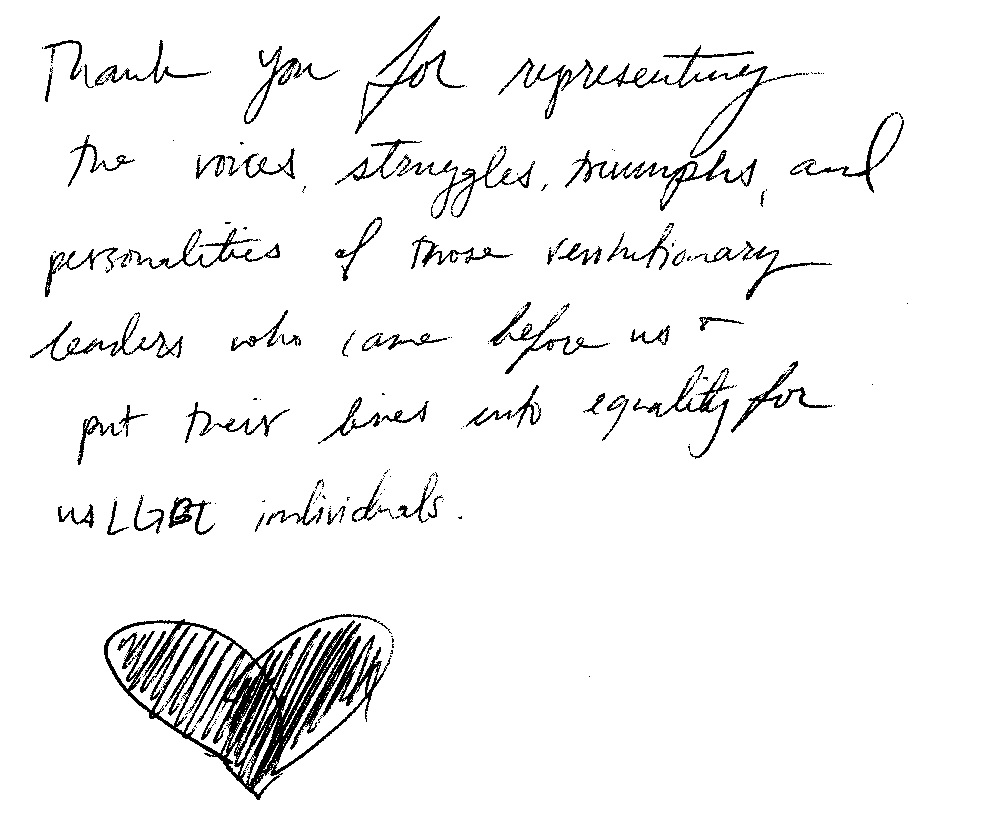 Thank you for representing
the voices, struggles, triumphs, and
personalities of those revolutionary
leaders who came before us +
put their lives into equality for
us LGBT individuals.